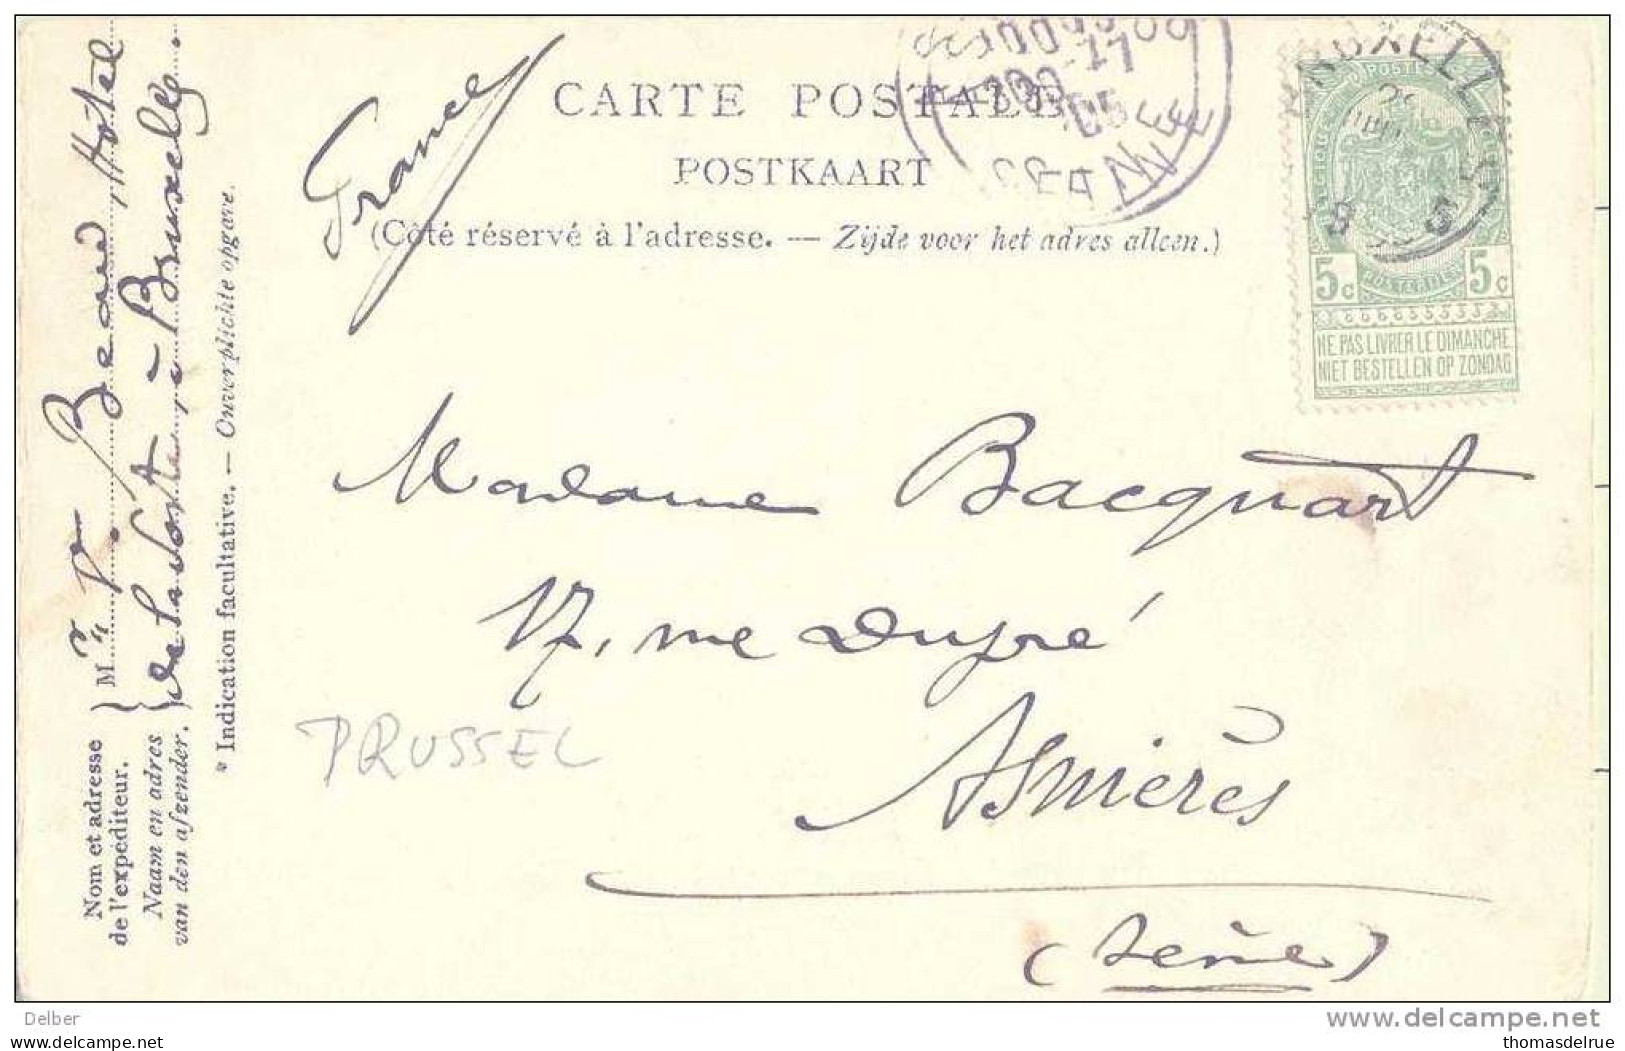 CARTE POSTALE
POSTKAART
(Côté réservé à l'adresse. — Zijde voor het adres alleen.)
France
BRUXELLES
POSTE
5c 5c
NE PAS LIVRER LE DIMANCHE
NIET BESTELLEN OP ZONDAG
Madame Bacquart
17, rue Dupré
Asnières
(Seine)
PRUSSEL
Nom et adresse
de l'expéditeur.
Naam en adres
van den afzender.
M V. Beau Hotel
de la Poste, - Bruxelles.
* Indication facultative. — Onverplichte opgave.
Delber
www.delcampe.net
thomasdelrue